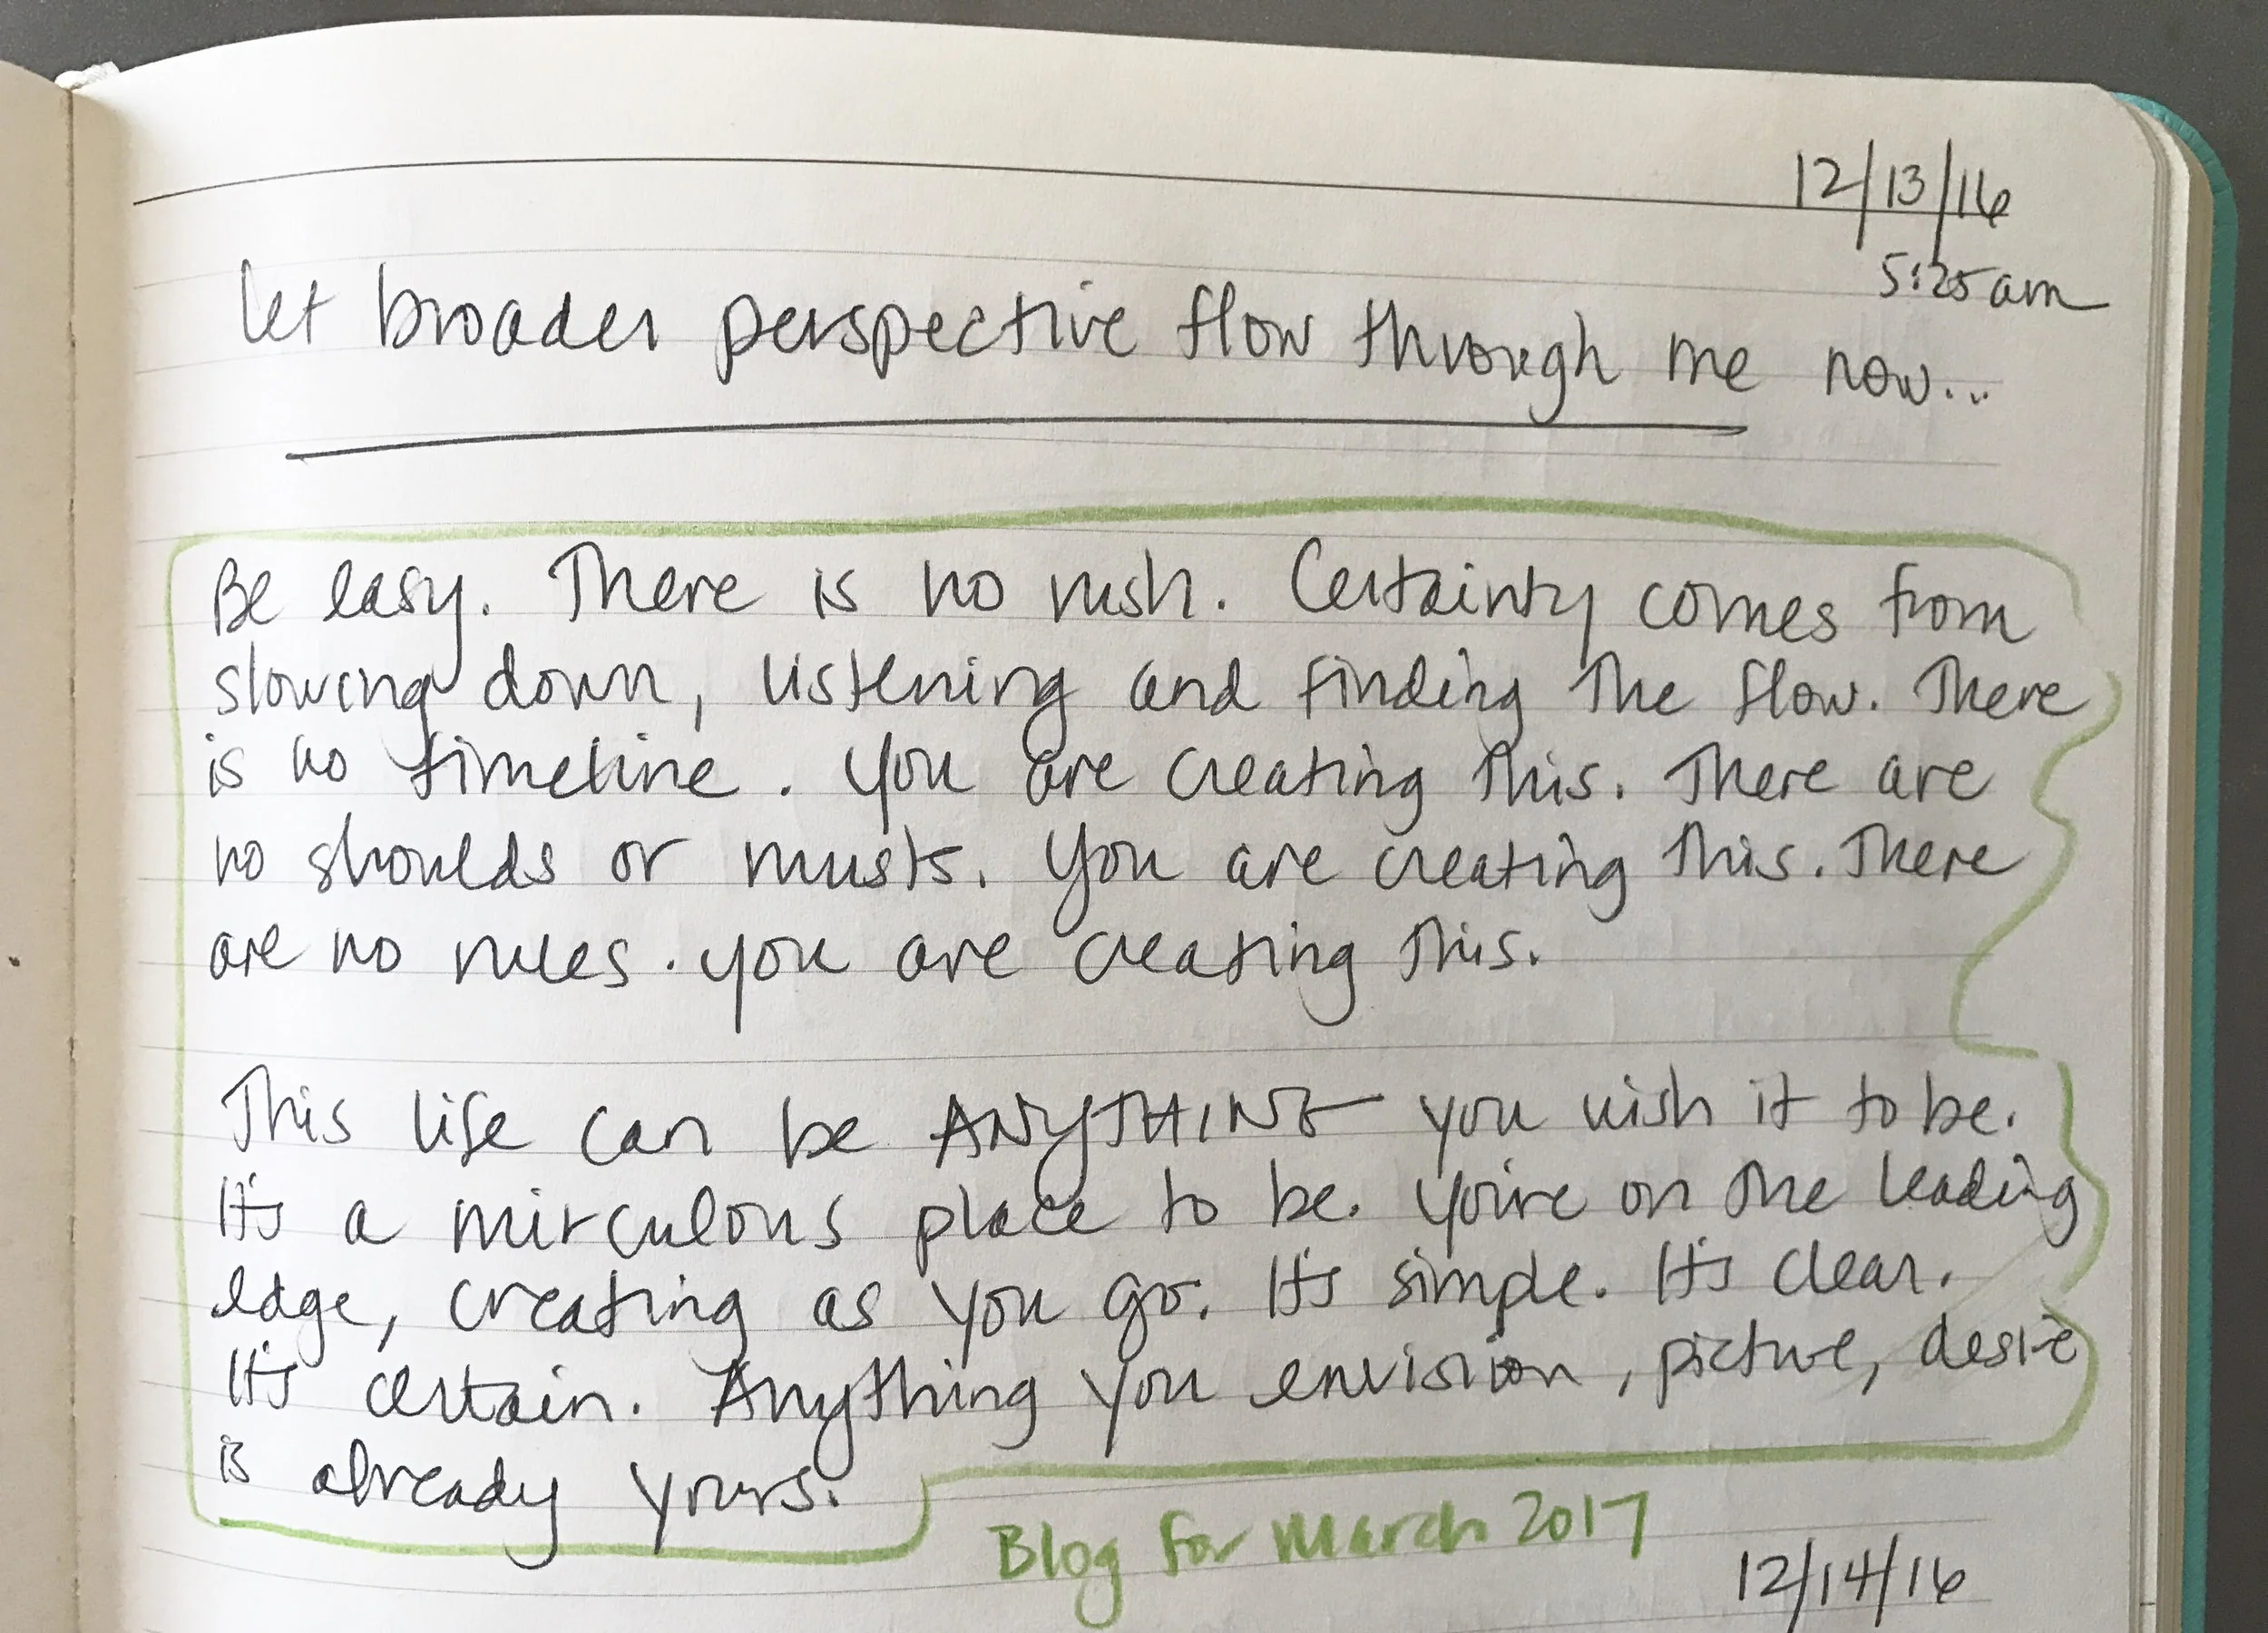 12/13/16
5:25am
Let broader perspective flow through me now...
Be easy. There is no rush. Certainty comes from
slowing down, listening and finding the flow. There
is no timeline. You are creating this. There are
no shoulds or musts. You are creating this. There
are no rules. you are creating this.
This life can be ANYTHING you wish it to be.
It's a mirculous place to be. You're on the leading
edge, creating as you go. It's simple. It's clear.
It's certain. Anything you envision, picture, desire
is already yours.
Blog for March 2017
12/14/16